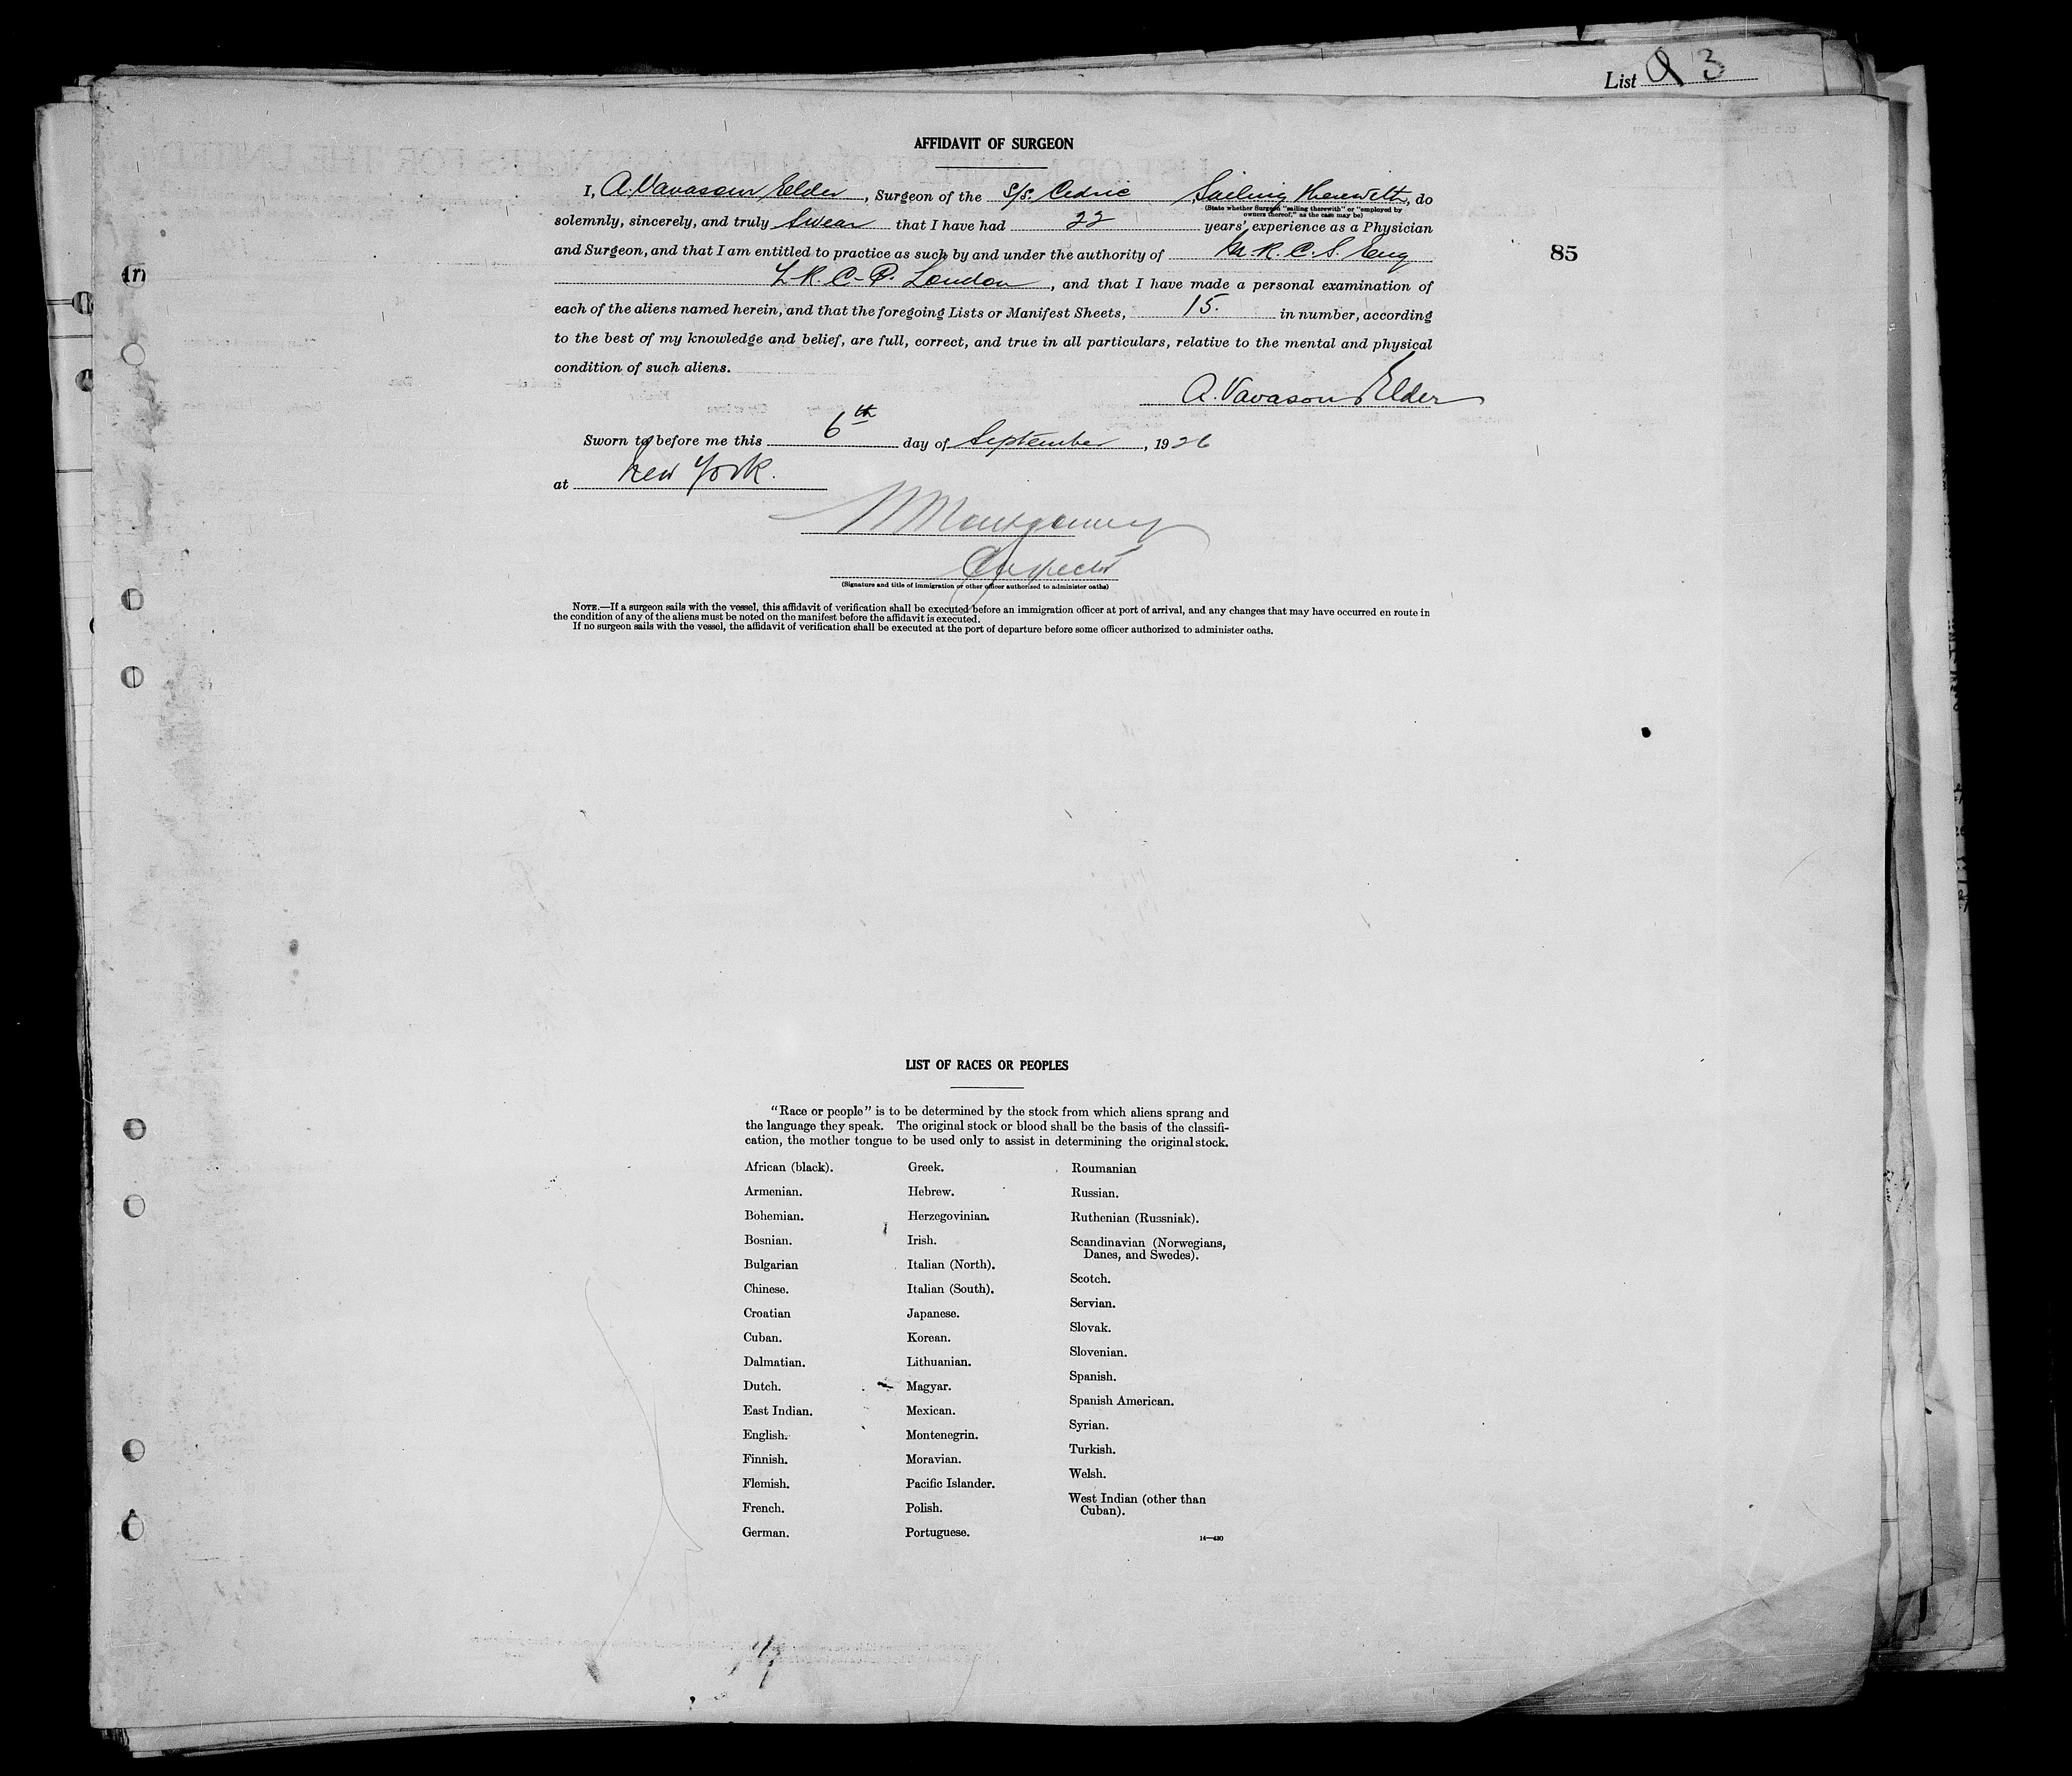 List 3
AFFIDAVIT OF SURGEON
I, A. Vavasour Elder, Surgeon of the S/S. Cedric Sailing Therewith, do
(State whether Surgeon "sailing therewith" or "employed by
owners thereof," as the case may be)
solemnly, sincerely, and truly Swear that I have had 22 years' experience as a Physician
and Surgeon, and that I am entitled to practice as such by and under the authority of M.R.C.S. Eng
85
L.R.C.P. London, and that I have made a personal examination of
each of the aliens named herein, and that the foregoing Lists or Manifest Sheets, 15. in number, according
to the best of my knowledge and belief, are full, correct, and true in all particulars, relative to the mental and physical
condition of such aliens.
A. Vavasour Elder
Sworn to before me this 6th day of September, 1926
at New York.
Montgomery
Inspector
(Signature and title of immigration or other officer authorized to administer oaths)
NOTE.—If a surgeon sails with the vessel, this affidavit of verification shall be executed before an immigration officer at port of arrival, and any changes that may have occurred en route in
the condition of any of the aliens must be noted on the manifest before the affidavit is executed.
If no surgeon sails with the vessel, the affidavit of verification shall be executed at the port of departure before some officer authorized to administer oaths.
LIST OF RACES OR PEOPLES
"Race or people" is to be determined by the stock from which aliens sprang and
the language they speak. The original stock or blood shall be the basis of the classifi-
cation, the mother tongue to be used only to assist in determining the original stock.
African (black).
Armenian.
Bohemian.
Bosnian.
Bulgarian
Chinese.
Croatian
Cuban.
Dalmatian.
Dutch.
East Indian.
English.
Finnish.
Flemish.
French.
German.
Greek.
Hebrew.
Herzegovinian.
Irish.
Italian (North).
Italian (South).
Japanese.
Korean.
Lithuanian.
Magyar.
Mexican.
Montenegrin.
Moravian.
Pacific Islander.
Polish.
Portuguese.
Roumanian
Russian.
Ruthenian (Russniak).
Scandinavian (Norwegians,
Danes, and Swedes).
Scotch.
Servian.
Slovak.
Slovenian.
Spanish.
Spanish American.
Syrian.
Turkish.
Welsh.
West Indian (other than
Cuban).
14—430